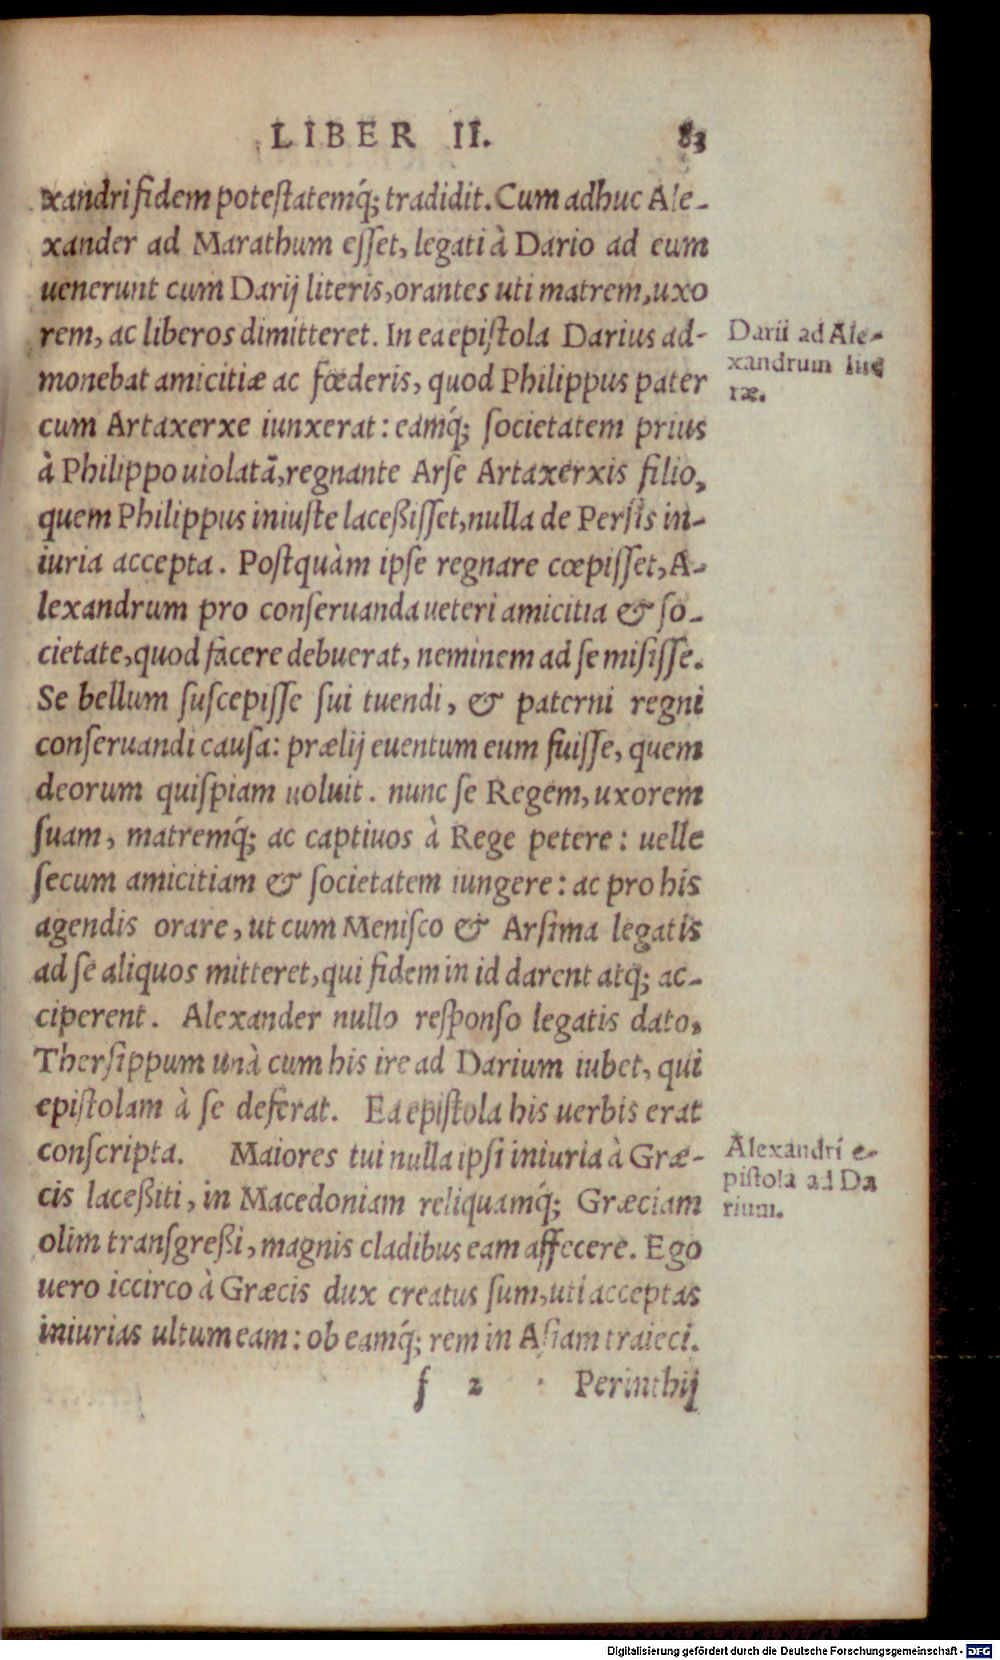 LIBER II. 83
xandri fidem poteſtatemq́; tradidit. Cum adhuc Ale-
xander ad Marathum eſſet, legati à Dario ad eum
uenerunt cum Darij literis, orantes uti matrem, uxo
rem, ac liberos dimitteret. In ea epiſtola Darius ad-
Darii ad Ale-
xandrum lite
ræ.
monebat amicitiæ ac fœderis, quod Philippus pater
cum Artaxerxe iunxerat: eamq́; ſocietatem prius
à Philippo uiolatā, regnante Arſe Artaxerxis filio,
quem Philippus iniuſte laceßiſſet, nulla de Perſis in-
iuria accepta. Poſtquàm ipſe regnare cœpiſſet, A-
lexandrum pro conſeruanda ueteri amicitia & ſo-
cietate, quod facere debuerat, neminem ad ſe miſiſſe.
Se bellum ſuſcepiſſe ſui tuendi, & paterni regni
conſeruandi cauſa: prælij euentum eum fuiſſe, quem
deorum quiſpiam uoluit. nunc ſe Regem, uxorem
ſuam, matremq́; ac captiuos à Rege petere: uelle
ſecum amicitiam & ſocietatem iungere: ac pro his
agendis orare, ut cum Meniſco & Arſima legatis
ad ſe aliquos mitteret, qui fidem in id darent atq́; ac-
ciperent. Alexander nullo reſponſo legatis dato,
Therſippum unà cum his ire ad Darium iubet, qui
epiſtolam à ſe deferat. Ea epiſtola his uerbis erat
conſcripta. Maiores tui nulla ipſi iniuria à Græ-
Alexandri e-
piſtola ad Da
rium.
cis laceßiti, in Macedoniam reliquamq́; Græciam
olim tranſgreßi, magnis cladibus eam affecere. Ego
uero iccirco à Græcis dux creatus ſum, uti acceptas
iniurias ultum eam: ob eamq́; rem in Aſiam traieci.
f 2 Perinthij
Digitalisierung gefördert durch die Deutsche Forschungsgemeinschaft - DFG